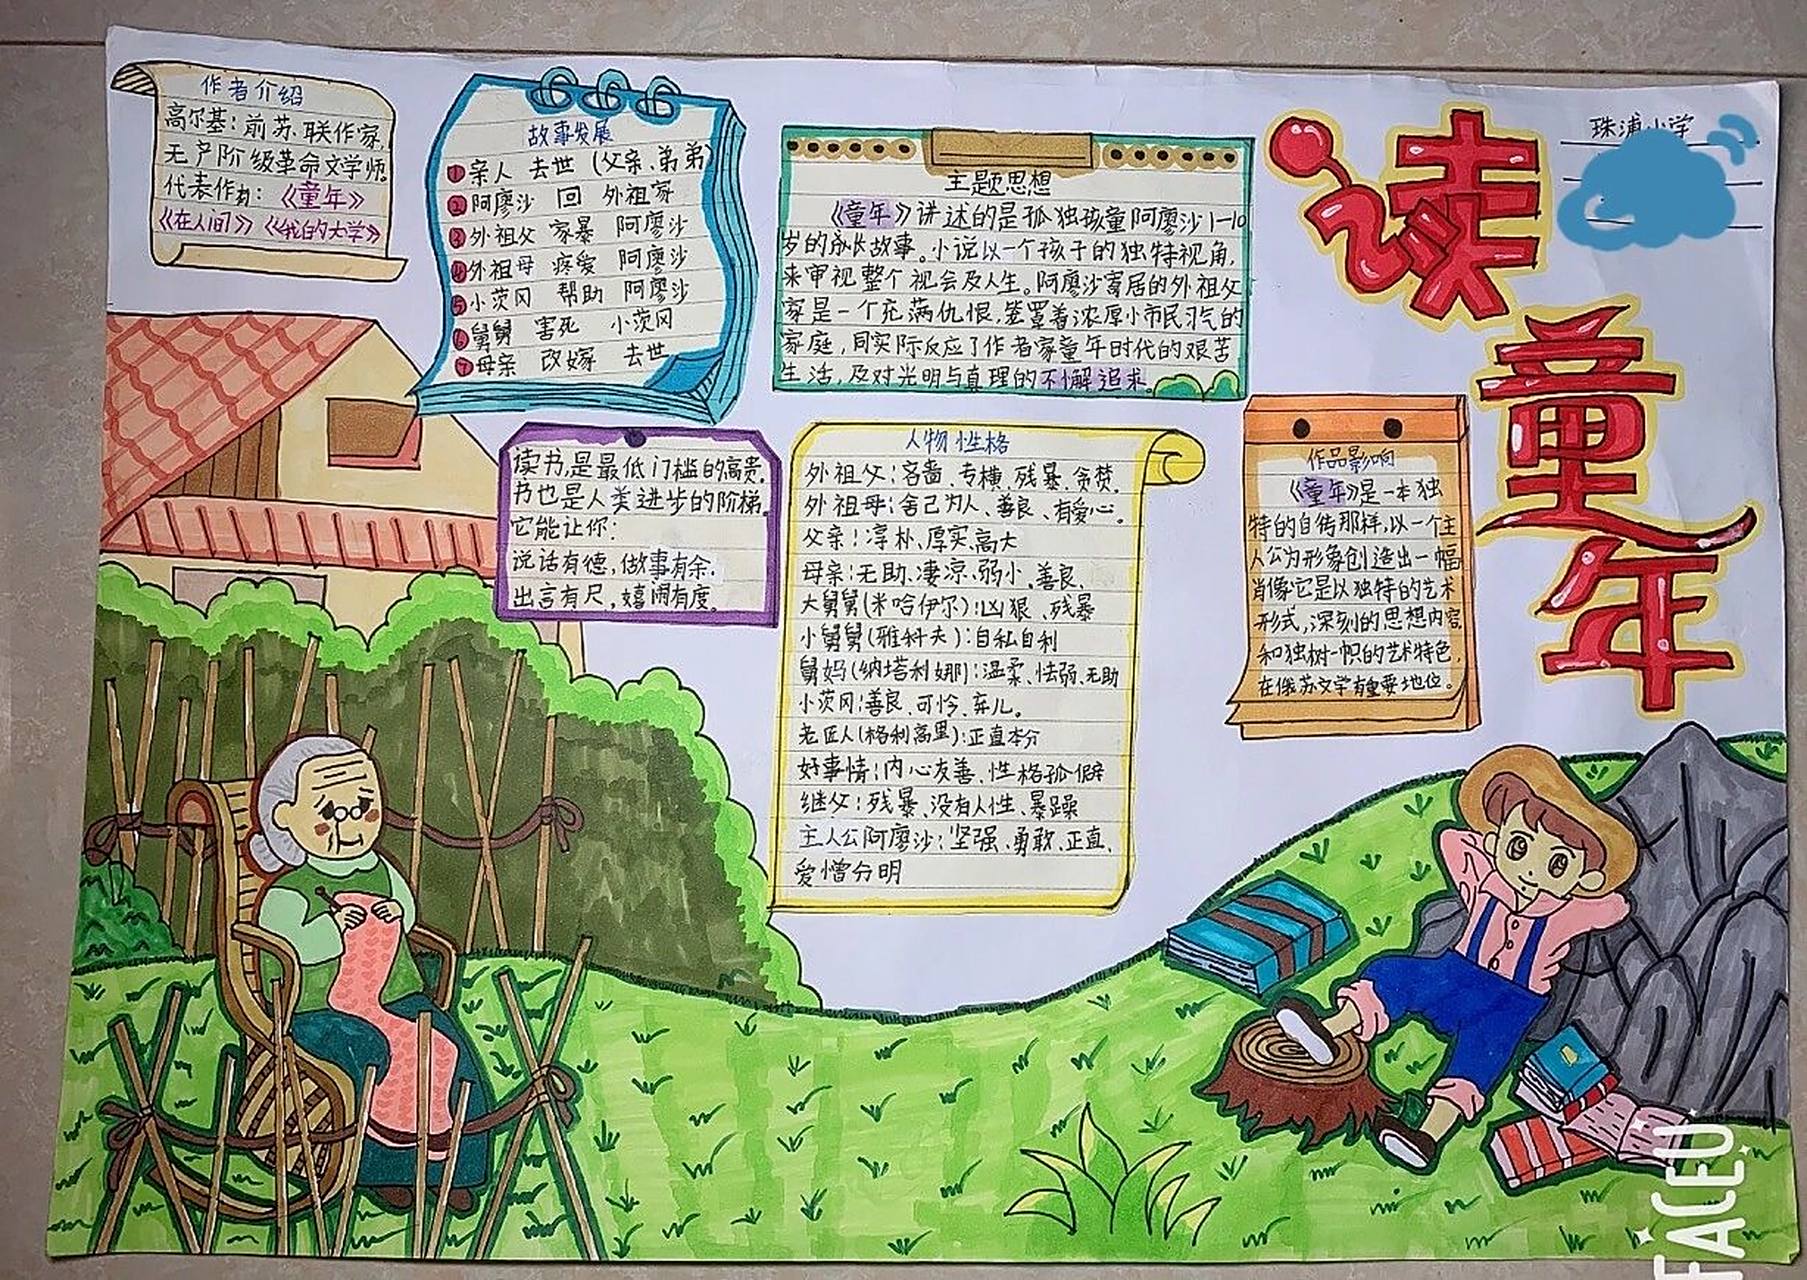 读童年
珠浦小学
作者介绍
高尔基：前苏联作家，
无产阶级革命文学师。
代表作有：《童年》
《在人间》《我的大学》
故事发展
①亲人 去世（父亲、弟弟）
②阿廖沙 回 外祖家
③外祖父 家暴 阿廖沙
④外祖母 疼爱 阿廖沙
⑤小茨冈 帮助 阿廖沙
⑥舅舅 害死 小茨冈
⑦母亲 改嫁 去世
主题思想
《童年》讲述的是孤独孩童阿廖沙1-10
岁的成长故事。小说以一个孩子的独特视角，
来审视整个视会及人生。阿廖沙寄居的外祖父
家是一个充满仇恨，笼罩着浓厚小市民习气的
家庭，同实际反应了作者家童年时代的艰苦
生活，及对光明与真理的不懈追求。
读书，是最低门槛的高贵。
书也是人类进步的阶梯。
它能让你：
说话有德，做事有余．
出言有尺，嬉闹有度。
人物性格
外祖父：吝啬、专横、残暴、贪婪．
外祖母：舍己为人、善良、有爱心。
父亲：淳朴、厚实、高大
母亲：无助、凄凉、弱小、善良、
大舅舅（米哈伊尔）：凶狠、残暴
小舅舅（雅科夫）：自私自利
舅妈（纳塔利娜）：温柔、怯弱、无助
小茨冈：善良、可怜、弃儿。
老匠人（格利高里）：正直本分
好事情：内心友善、性格孤僻
继父：残暴、没有人性、暴躁
主人公阿廖沙：坚强、勇敢、正直、
爱憎分明
作品影响
《童年》是一本独
特的自传那样，以一个主
人公为形象创造出一幅
肖像它是以独特的艺术
形式，深刻的思想内容
和独树一帜的艺术特色，
在俄苏文学有重要地位。
FACEU